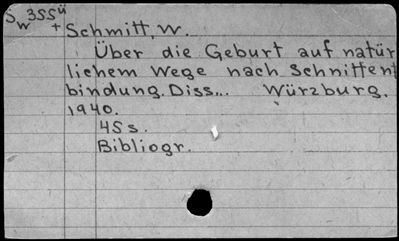 S 3SSü
w + Schmitt, W.
Über die Geburt auf natür
lichem Wege nach Schnittent
bindung. Diss... Würzburg.
1940.
45s.
Bibliogr.